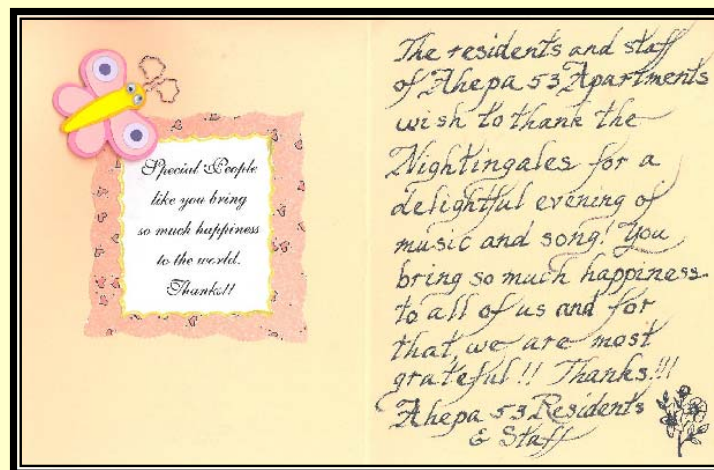 Special People
like you bring
so much happiness
to the world.
Thanks!!
The residents and staff
of Ahepa 53 Apartments
wish to thank the
Nightingales for a
delightful evening of
music and song! You
bring so much happiness
to all of us and for
that, we are most
grateful!! Thanks!!!
Ahepa 53 Residents
& Staff